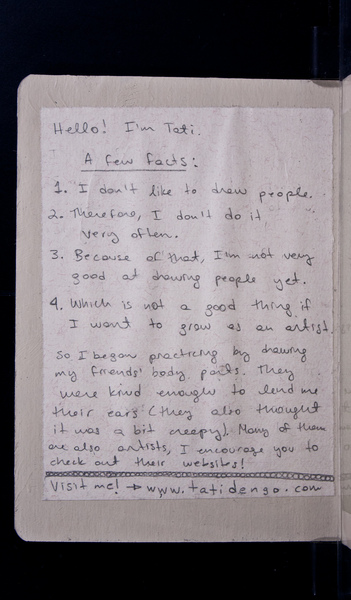 Hello! I'm Tati.
A few facts:
1. I don't like to draw people.
2. Therefore, I don't do it
very often.
3. Because of that, I'm not very
good at drawing people yet.
4. Which is not a good thing if
I want to grow as an artist.
So I began practicing by drawing
my friends' body parts. They
were kind enough to lend me
their ears (they also thought
it was a bit creepy). Many of them
are also artists, I encourage you to
check out their websites!
Visit me! → www.tatidengo.com